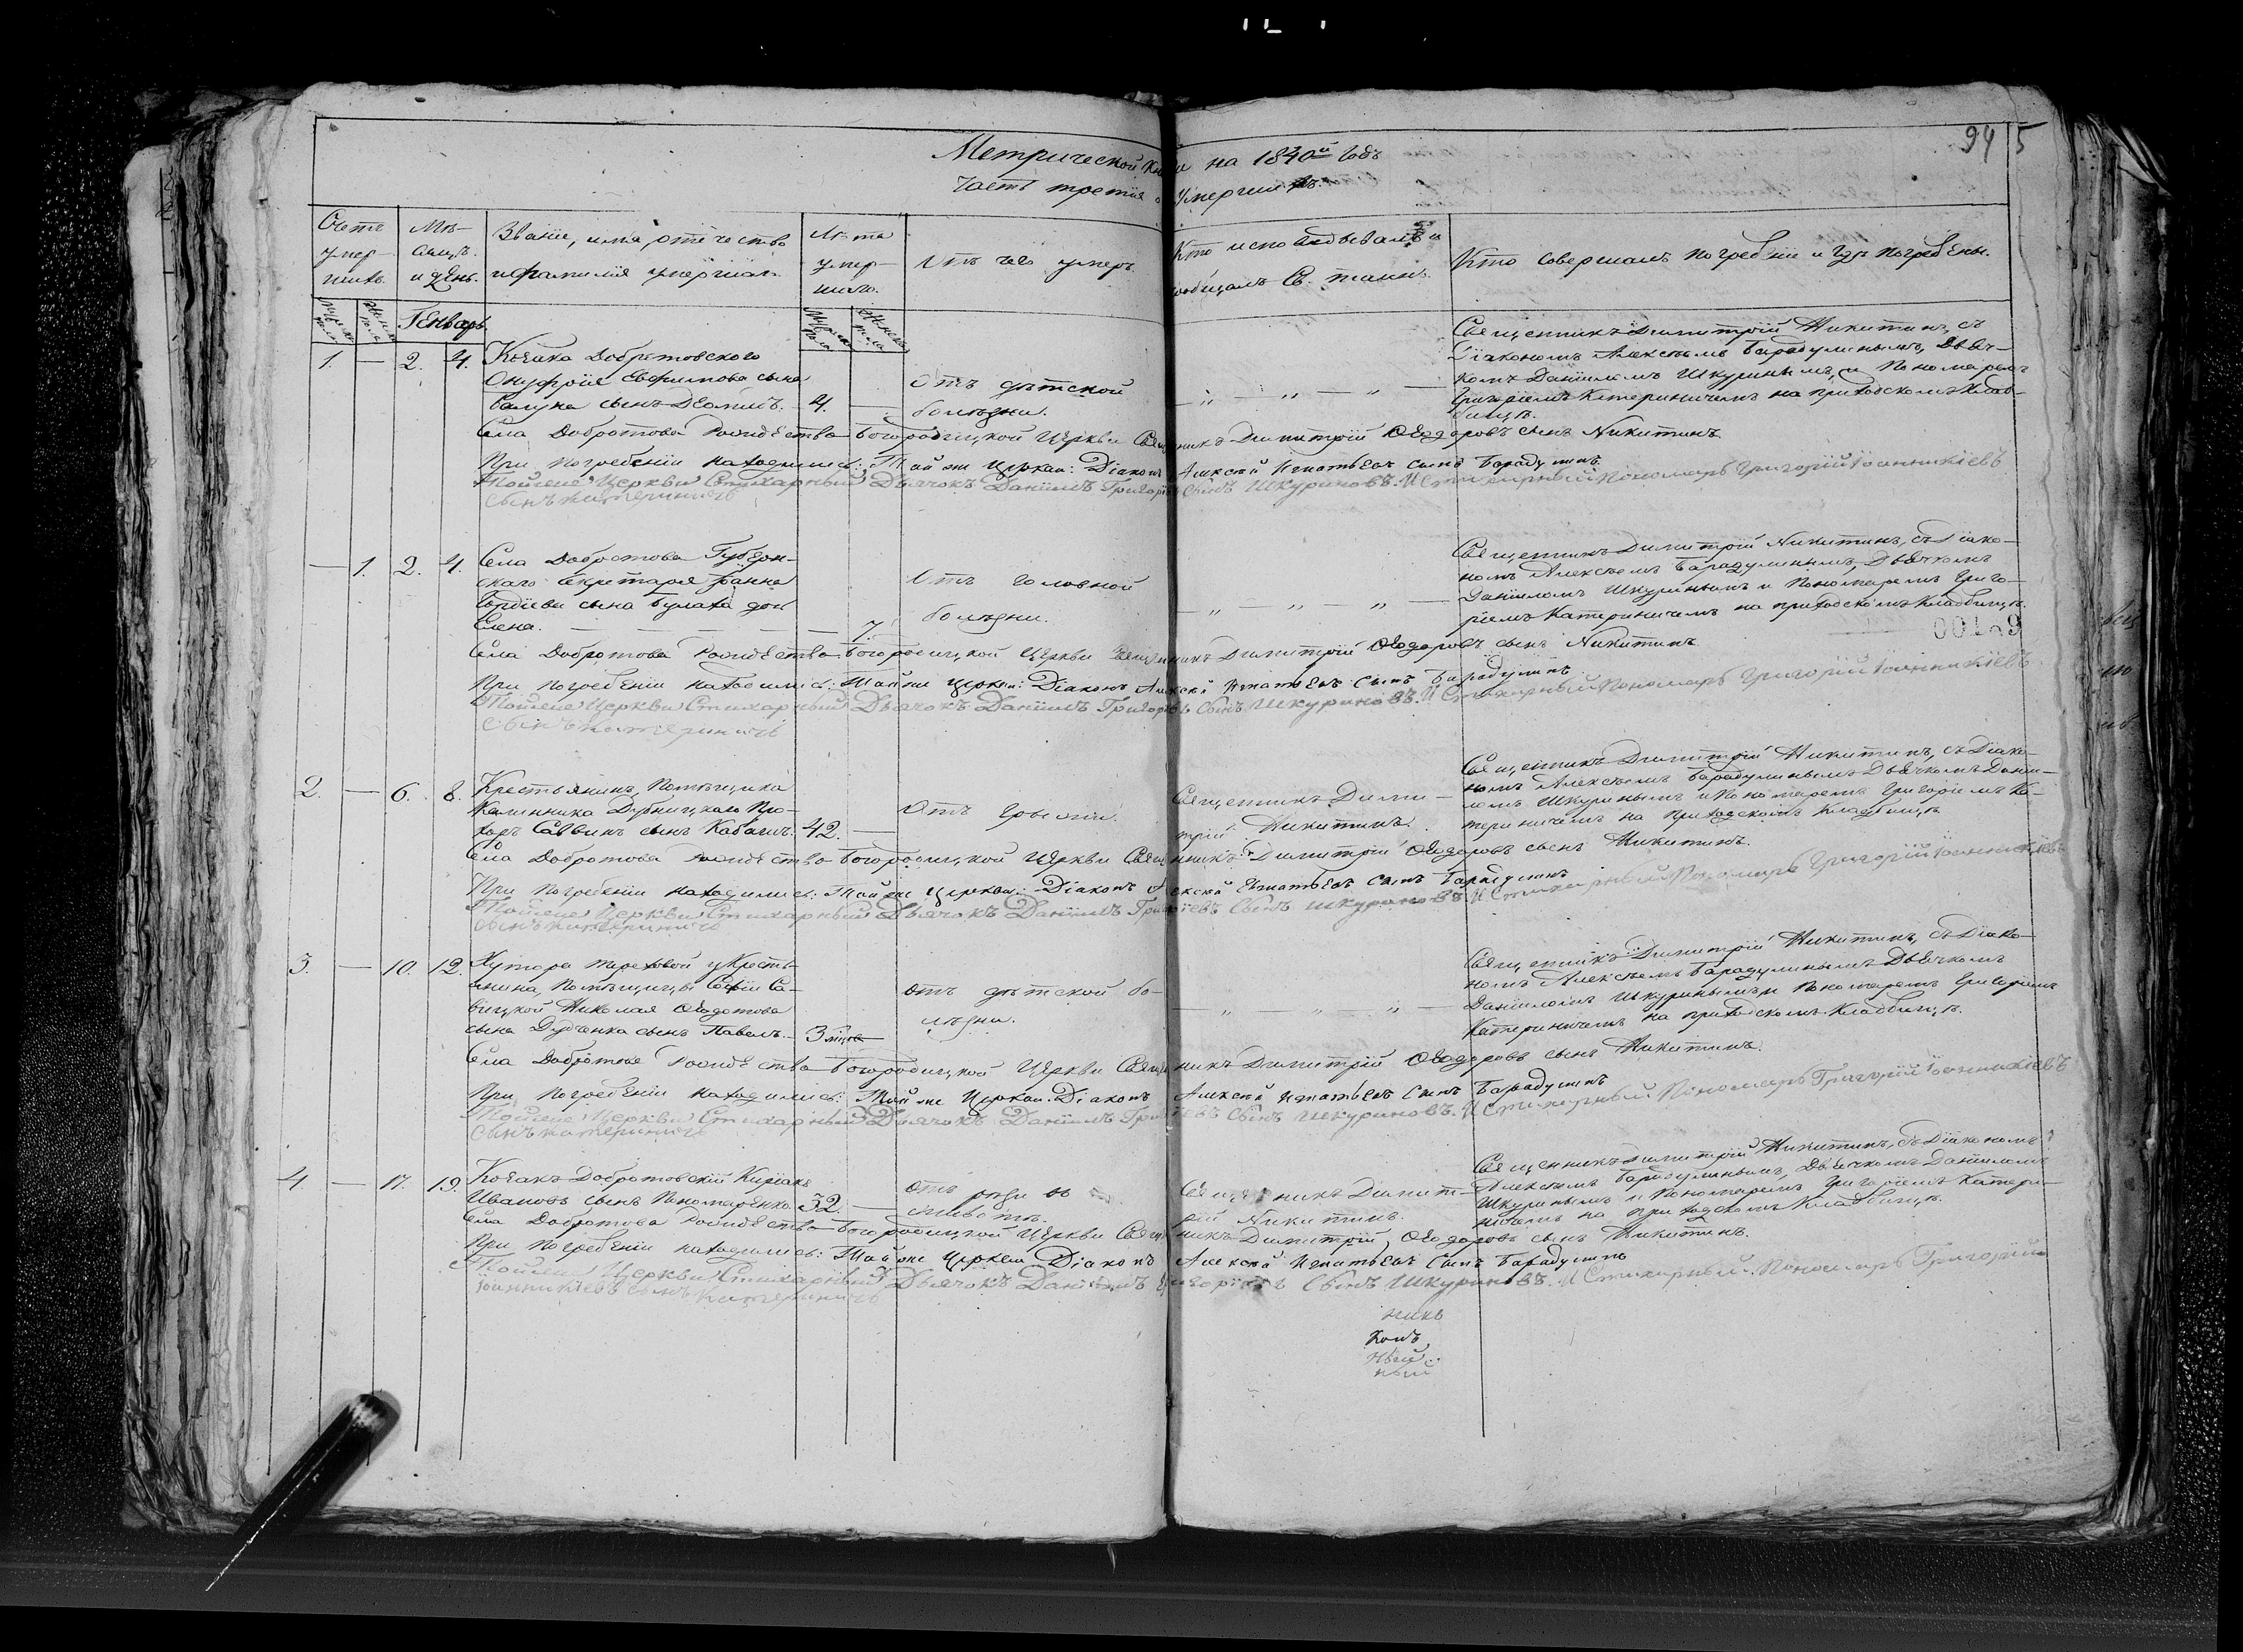 94 5
Метрической книги на 1840й Годъ
Часть третія о Умершихъ.
Счетъ умер-шихъ.
Мѣ-сяцъ и день.
Званіе, имя, отечество и фамилія умершихъ
Лѣта умер-шаго.
Отъ чего умеръ
Кто исповѣдывалъ и пріобщалъ Св. таинъ.
Кто совершалъ погребеніе и гдѣ погребены.
Генварь
1. — 2. 4. Козака Добротовского
Онуфрія Евфимова сына
сынъ Леонидъ. 4. —
Отъ дѣтской
болѣзни.
— „ — „ — „ —
Священникъ Димитрій Никитинъ, съ
Діякономъ Алексѣемъ Барадулинымъ, Дьяч-
комъ Даніиломъ Шкуринымъ, и Пономаремъ
Григоріемъ Катериничемъ на приходскомъ клад-
бищѣ.
Села Добротова Рождества-Богородицкой Церкви Священникъ Димитрій Ѳеодоровъ сынъ Никитинъ
При погребеніи находились: Той же Церкви: Діаконъ Алексѣй Игнатьевъ сынъ Барадулинъ
Тойже Церкви Стихарный Дьячокъ Даніилъ Григоріевъ Сынъ Шкуриновъ. И Стихарный Пономарь Григорій Іоанникіевъ
Сынъ Катериничъ
— 1. 2. 4. Села Добротова Губерн-
скаго Секретаря
Гордіева сына Булаха дочь
Елена. — — — — — 7.
Отъ головной
болѣзни.
— „ — „ — „ —
Священникъ Димитрій Никитинъ, съ Діяко-
номъ Алексѣемъ Барадулинымъ, Дьячкомъ
Даніиломъ Шкуринымъ и Пономаремъ Григо-
ріемъ Катериничемъ на приходскомъ кладбищѣ.
Села Добротова Рождества-Богородицкой Церкви Священникъ Димитрій Ѳеодоровъ сынъ Никитинъ
При погребеніи находились: Той же Церкви: Діаконъ Алексѣй Игнатьевъ Сынъ Барадулинъ
Тойже Церкви Стихарный Дьячокъ Даніилъ Григоріевъ Сынъ Шкуриновъ. И Стихарный Пономарь Григорій Іоанникіевъ
Сынъ Катериничъ
2. — 6. 8. Крестьянинъ, Помѣщика
Калинника Дубницкаго
Саввинъ сынъ 42. —
Отъ
Священникъ Дими-
трій Никитинъ.
Священникъ Димитрій Никитинъ, съ Діяко-
номъ Алексѣемъ Барадулинымъ Дьячкомъ Даніи-
ломъ Шкуринымъ и Пономаремъ Григоріемъ Ка-
териничемъ на приходскомъ кладбищѣ
Села Добротова Рождества-Богородицкой Церкви Священникъ Димитрій Ѳеодоровъ сынъ Никитинъ.
При погребеніи находились: Той же Церкви: Діаконъ Алексѣй Игнатьевъ Сынъ Барадулинъ
Тойже Церкви Стихарный Дьячокъ Даніилъ Григоріевъ Сынъ Шкуриновъ. И Стихарный Пономарь Григорій Іоанникіевъ
Сынъ Катериничъ
3. — 10. 12. Хутора у Кресть-
янина, Помѣщицы Софіи Са-
вицкой Николая Ѳедотова
сына Дудченка сынъ Павелъ. —
Отъ дѣтской бо-
лѣзни.
— „ — „ — „ —
Священникъ Димитрій Никитинъ, съ Діяко-
номъ Алексѣемъ Барадулинымъ Дьячкомъ
Даніиломъ Шкуринымъ и Пономаремъ Григоріемъ
Катериничемъ на приходскомъ кладбищѣ.
Села Добротова Рождества-Богородицкой Церкви Священникъ Димитрій Ѳеодоровъ сынъ Никитинъ.
При погребеніи находились: Той же Церкви: Діаконъ Алексѣй Игнатьевъ Сынъ Барадулинъ
Тойже Церкви Стихарный Дьячокъ Даніилъ Григоріевъ Сынъ Шкуриновъ. И Стихарный Пономарь Григорій Іоанникіевъ
Сынъ Катериничъ
4 — 17. 19. Козакъ Добротовскій Киріакъ
Ивановъ сынъ Пономаренко 32. —
Отъ рѣзи въ
животѣ.
Священникъ Димит-
рій Никитинъ.
Священникъ Димитрій Никитинъ, съ Діякономъ
Алексѣемъ Барадулинымъ, Дьячкомъ Даніиломъ
Шкуринымъ и Пономаремъ Григоріемъ Катери-
ничемъ на приходскомъ кладбищѣ.
Села Добротова Рождества-Богородицкой Церкви Священникъ Димитрій Ѳеодоровъ сынъ Никитинъ.
При погребеніи находились: Той же Церкви Діаконъ Алексѣй Игнатьевъ Сынъ Барадулинъ
Тойже Церкви Стихарный Дьячокъ Даніилъ Григоріевъ Сынъ Шкуриновъ. И Стихарный Пономарь Григорій
Іоанникіевъ Сынъ Катериничъ
никъ
конъ
ный